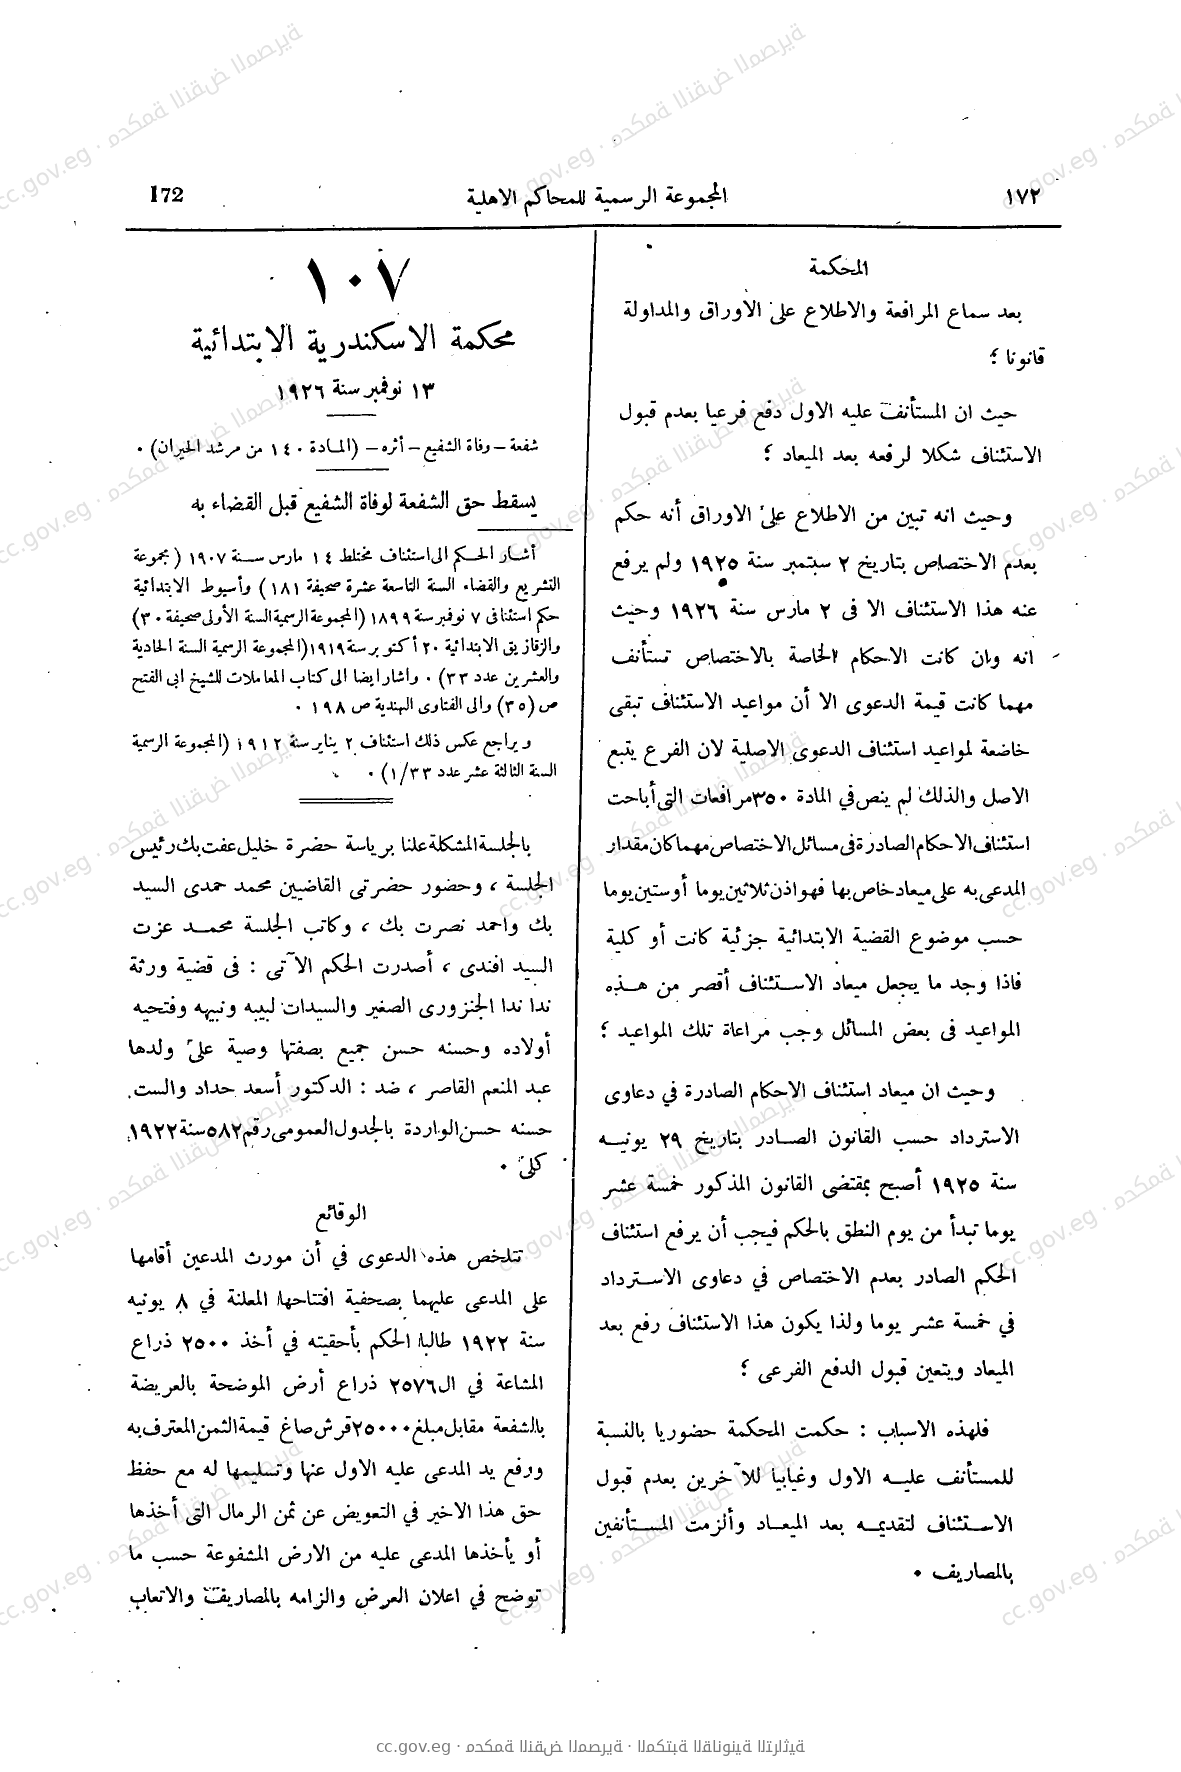 ١٧٢
المجموعة الرسمية للمحاكم الاهلية
172
المحكمة
بعد سماع المرافعة والاطلاع على الأوراق والمداولة
قانونا ؛
حيث ان المستأنف عليه الاول دفع فرعيا بعدم قبول
الاستئناف شكلا لرفعه بعد الميعاد ؛
وحيث انه تبين من الاطلاع على الاوراق أنه حكم
بعدم الاختصاص بتاريخ ٢ سبتمبر سنة ١٩٢٥ ولم يرفع
عنه هذا الاستئناف الا فى ٢ مارس سنة ١٩٢٦ وحيث
انه وان كانت الاحكام الخاصة بالاختصاص تستأنف
مهما كانت قيمة الدعوى الا أن مواعيد الاستئناف تبقى
خاضعة لمواعيد استئناف الدعوى الاصلية لان الفرع يتبع
الاصل والذلك لم ينص في المادة ٣٥٠ مرافعات التى أباحت
استئناف الاحكام الصادرة فى مسائل الاختصاص مهما كان مقدار
المدعى به على ميعاد خاص بها فهو اذن ثلاثين يوما أو ستين يوما
حسب موضوع القضية الابتدائية جزئية كانت أو كلية
فاذا وجد ما يجعل ميعاد الاستئناف أقصر من هذه
المواعيد فى بعض المسائل وجب مراعاة تلك المواعيد ؛
وحيث ان ميعاد استئناف الاحكام الصادرة في دعاوى
الاسترداد حسب القانون الصادر بتاريخ ٢٩ يونيه
سنة ١٩٢٥ أصبح بمقتضى القانون المذكور خمسة عشر
يوما تبدأ من يوم النطق بالحكم فيجب أن يرفع استئناف
الحكم الصادر بعدم الاختصاص في دعاوى الاسترداد
في خمسة عشر يوما ولذا يكون هذا الاستئناف رفع بعد
الميعاد ويتعين قبول الدفع الفرعى ؛
فلهذه الاسباب : حكمت المحكمة حضوريا بالنسبة
للمستأنف عليه الاول وغيابيا للآخرين بعدم قبول
الاستئناف لتقديمه بعد الميعاد وألزمت المستأنفين
بالمصاريف ٠
١٠٧
محكمة الاسكندرية الابتدائية
١٣ نوفمبر سنة ١٩٢٦
شفعة – وفاة الشفيع – أثره – (المادة ١٤٠ من مرشد الحيران) ٠
يسقط حق الشفعة لوفاة الشفيع قبل القضاء به
أشار الحكم الى استئناف مختلط ١٤ مارس سنة ١٩٠٧ (مجموعة
التشريع والقضاء السنة التاسعة عشرة صحيفة ١٨١) وأسيوط الابتدائية
حكم استئنافى ٧ نوفمبر سنة ١٨٩٩ (المجموعة الرسمية السنة الأولى صحيفة ٣٠)
والزقازيق الابتدائية ٢٠ أكتوبر سنة ١٩١٩ (المجموعة الرسمية السنة الحادية
والعشرين عدد ٣٣) ٠ وأشار ايضا الى كتاب المعاملات للشيخ ابى الفتح
ص (٣٥) والى الفتاوى الهندية ص ١٩٨ ٠
ويراجع عكس ذلك استئناف ٢ يناير سنة ١٩١٢ (المجموعة الرسمية
السنة الثالثة عشر عدد ١/٣٣) ٠
بالجلسة المشكلة علنا برياسة حضرة خليل عفت بك رئيس
الجلسة ، وحضور حضرتى القاضيين محمد حمدى السيد
بك واحمد نصرت بك ، وكاتب الجلسة محمد عزت
السيد افندى ، أصدرت الحكم الآتى : فى قضية ورثة
ندا ندا الجنزورى الصغير والسيدات لبيبه ونبيهه وفتحيه
أولاده وحسنه حسن جميع بصفتها وصية على ولدها
عبد المنعم القاصر ، ضد : الدكتور أسعد حداد والست
حسنه حسن الواردة بالجدول العمومى رقم ٥٨٢ سنة ١٩٢٢
كلى ٠
الوقائع
تتلخص هذه الدعوى في أن مورث المدعين أقامها
على المدعى عليهما بصحفية افتتاحها المعلنة في ٨ يونيه
سنة ١٩٢٢ طالبا الحكم بأحقيته في أخذ ٢٥٠٠ ذراع
المشاعة في ال٢٥٧٦ ذراع أرض الموضحة بالعريضة
بالشفعة مقابل مبلغ ٢٥٠٠٠ قرش صاغ قيمة الثمن المعترف به
ورفع يد المدعى عليه الاول عنها وتسليمها له مع حفظ
حق هذا الاخير في التعويض عن ثمن الرمال التى أخذها
أو يأخذها المدعى عليه من الارض المشفوعة حسب ما
توضح في اعلان العرض والزامه بالمصاريف والاتعاب
cc.gov.eg · محكمة النقض المصرية · المكتبة القانونية التراثية